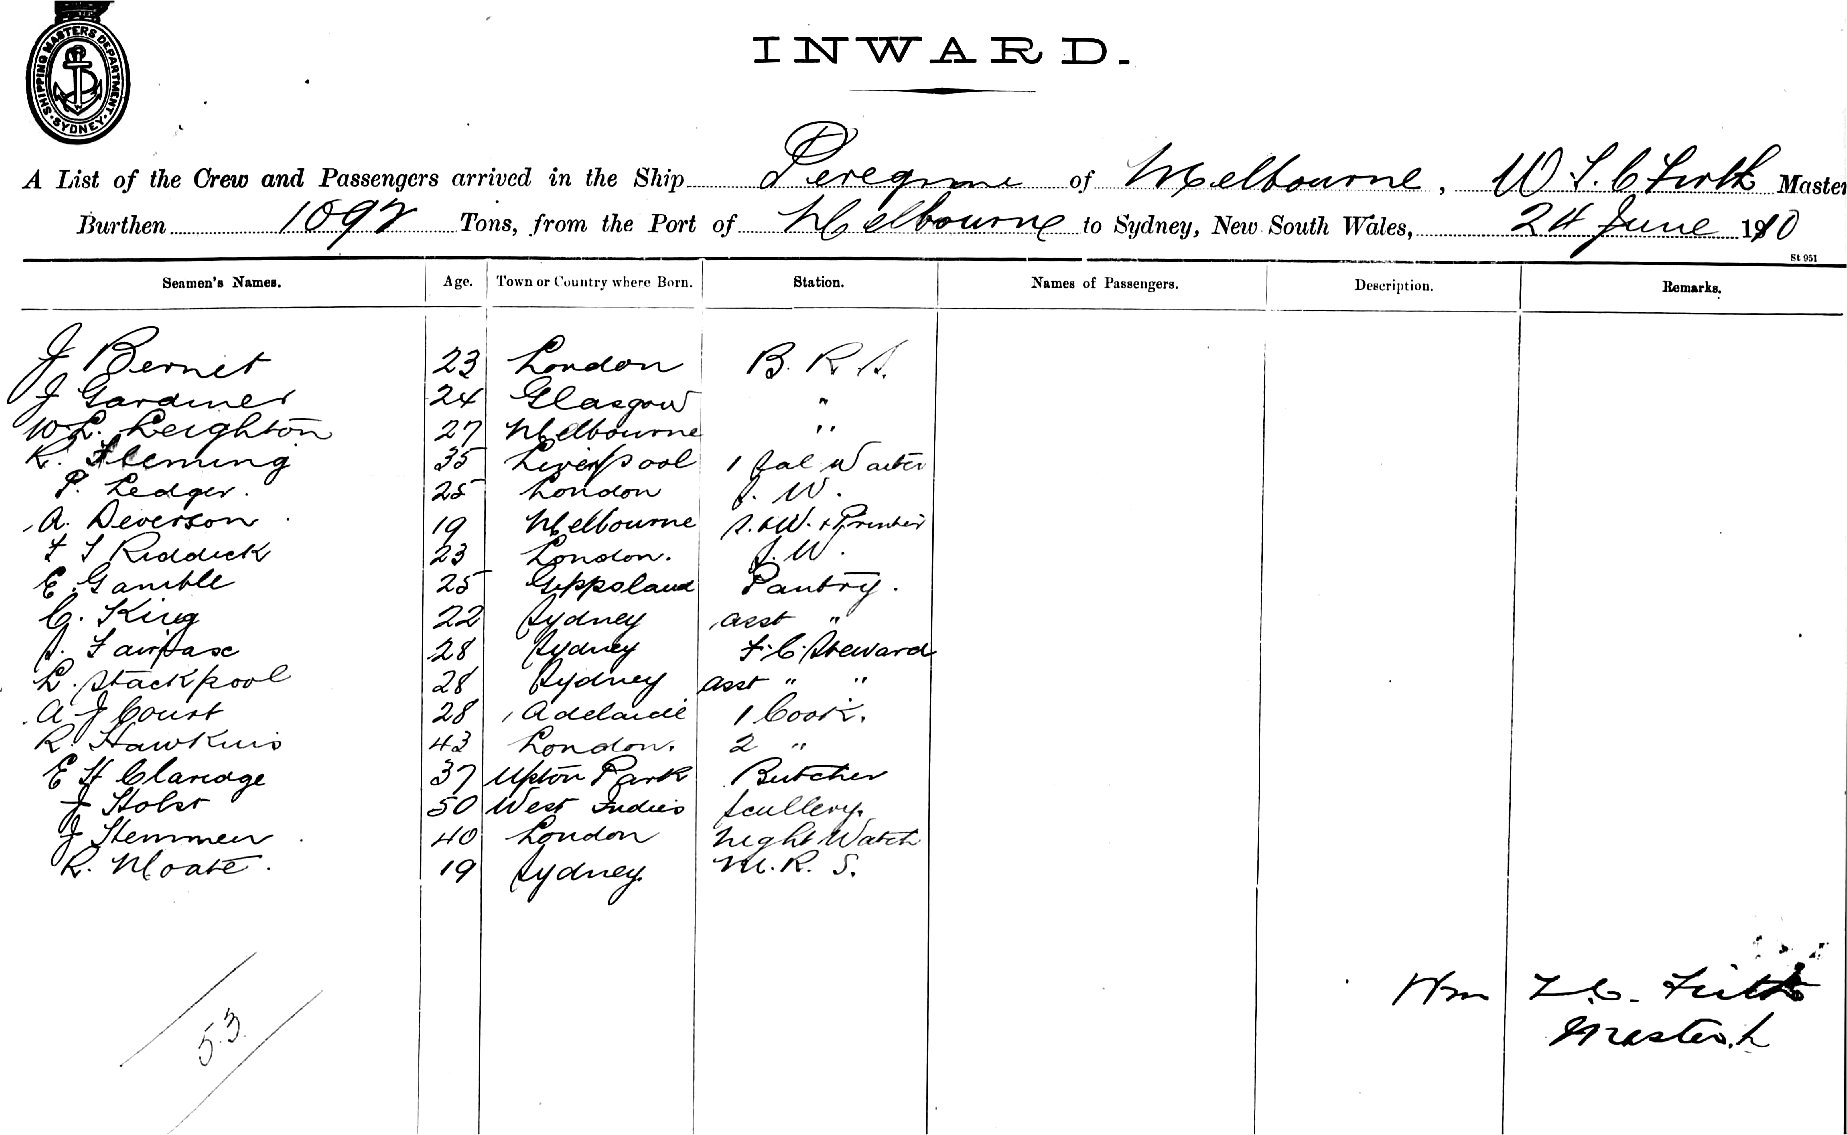 SHIPPING MASTERS DEPARTMENT · SYDNEY ·
INWARD.
A List of the Crew and Passengers arrived in the Ship Peregrine of Melbourne, W T C Firth Master
Burthen 1092 Tons, from the Port of Melbourne to Sydney, New South Wales, 24 June 1910
St 951
Seamen's Names. Age. Town or Country where Born. Station. Names of Passengers. Description. Remarks.
J Bernet 23 London B. R. S.
J Gardiner 24 Glasgow "
W L. Leighton 27 Melbourne "
R. Fleming 35 Liverpool 1 Sal Waiter
P. Ledger. 25 London S. W.
A. Deverson 19 Melbourne S. W. + Printer
F T Riddick 23 London. S. W.
E Gamble 25 Gippsland Pantry.
C. King 22 Sydney asst "
S. Fairfax 28 Sydney F. C. Steward
L. Stackpool 28 Sydney asst " "
A J Court 28 Adelaide 1 Cook.
R. Hawkins 43 London. 2 "
E H Claridge 37 Upton Park Butcher
J Holst 50 West Indies Scullery.
J Hemmen 40 London Night Watch
R. Moate. 19 Sydney. M. R. S.
53.
Wm T. C. Firth
Master